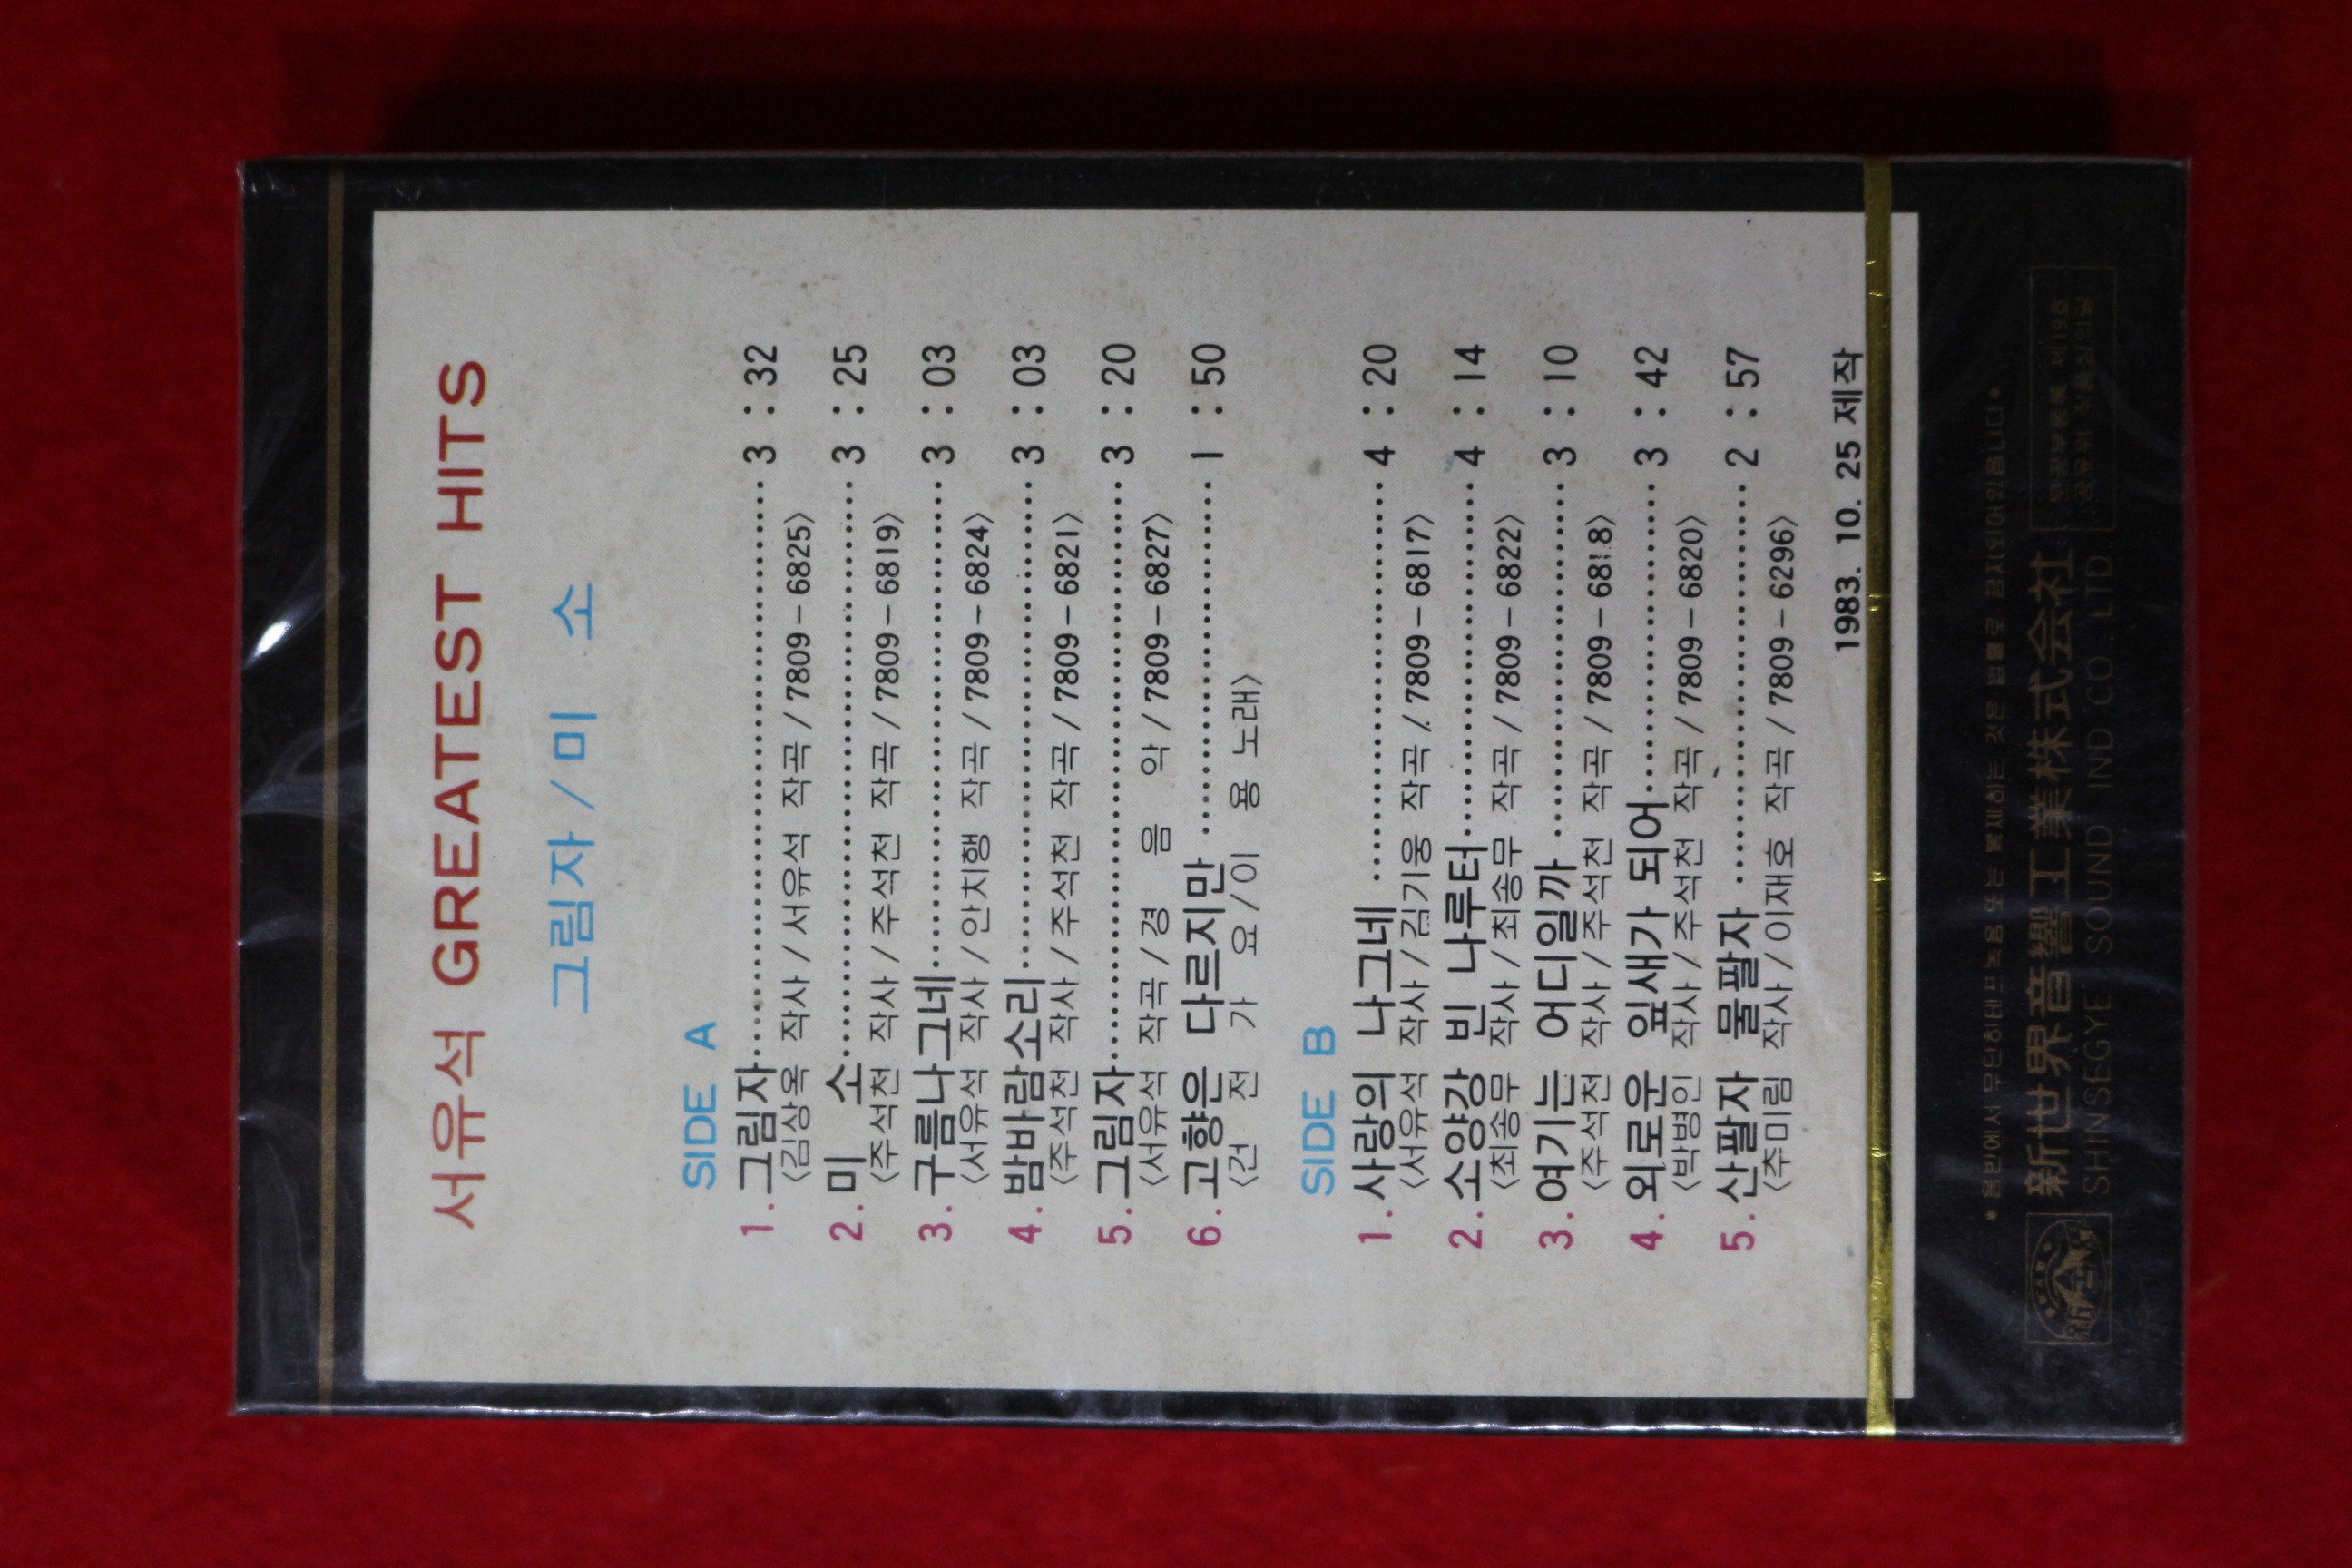 서유석 GREATEST HITS
그림자/미 소
SIDE A
1.그림자 3:32
〈김상옥 작사/서유석 작곡/7809-6825〉
2.미 소 3:25
〈주석천 작사/주석천 작곡/7809-6819〉
3.구름나그네 3:03
〈서유석 작사/안치행 작곡/7809-6824〉
4.밤바람소리 3:03
〈주석천 작사/주석천 작곡/7809-6821〉
5.그림자 3:20
〈서유석 작곡/경 음 악/7809-6827〉
6.고향은 다르지만 1:50
〈건 전 가 요/이 용 노래〉
SIDE B
1.사랑의 나그네 4:20
〈서유석 작사/김기웅 작곡/7809-6817〉
2.소양강 빈 나루터 4:14
〈최송무 작사/최송무 작곡/7809-6822〉
3.여기는 어디일까 3:10
〈주석천 작사/주석천 작곡/7809-6818〉
4.외로운 잎새가 되어 3:42
〈박병인 작사/주석천 작곡/7809-6820〉
5.산팔자 물팔자 2:57
〈추미림 작사/이재호 작곡/7809-6296〉
1983. 10. 25 제작
*음반에서 무단히 테프녹음 또는 복제하는 것은 법률로 금지되어있읍니다*
新世界音響工業株式会社
SHINSEGYE SOUND IND CO. LTD